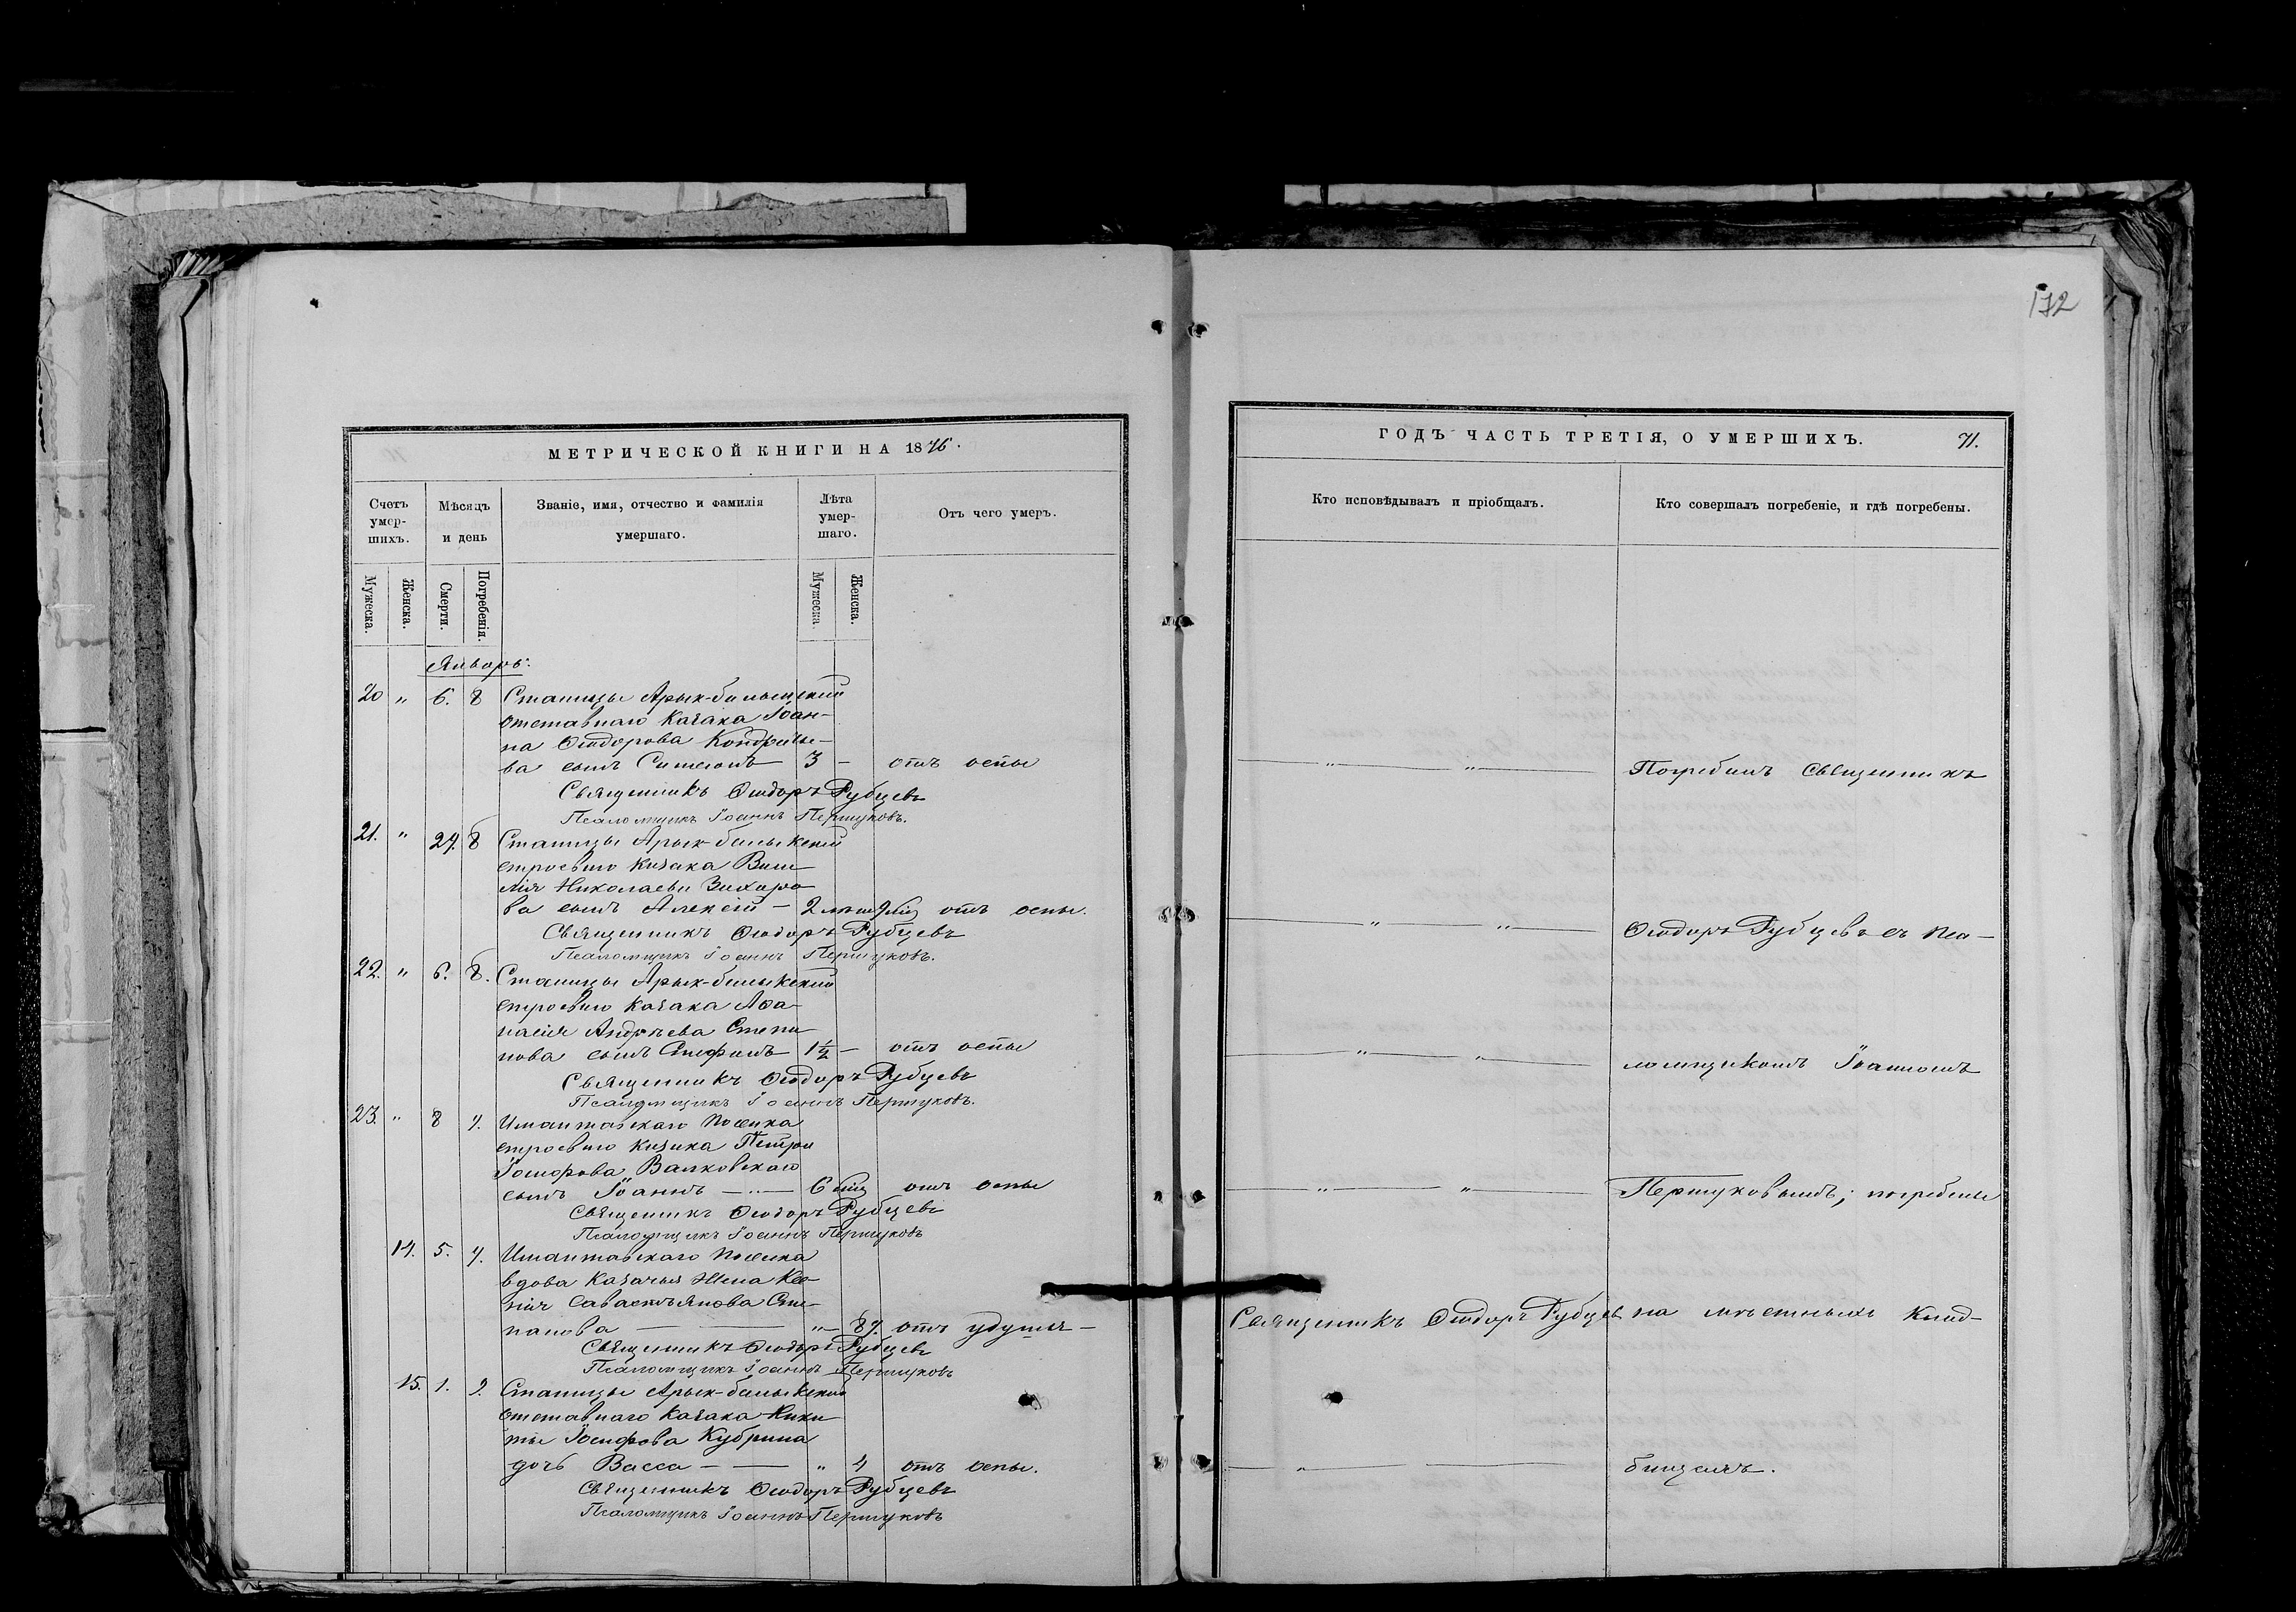 172
МЕТРИЧЕСКОЙ КНИГИ НА 1876.
Счетъ умер-шихъ.
Мѣсяцъ и день
Званіе, имя, отчество и фамилія умершаго.
Лѣта умер-шаго.
Отъ чего умеръ.
Мужеска.
Женска.
Смерти.
Погребенія.
Мужеска.
Женска.
Январь.
20 " 6. 8 Станицы Арык-балыкской
отставнаго казака Іоан-
на Ѳеодорова Кондратье-
ва сынъ Симеонъ 3 — отъ оспы
Священникъ Ѳеодоръ Рубцевъ
Псаломщикъ Іоаннъ Першуковъ.
21. " 27. 8 Станицы Арык-балыкской
строеваго казака Васи-
лія Николаева Захаро-
ва сынъ Алексій — 2 отъ оспы.
Священникъ Ѳеодоръ Рубцевъ
Псаломщикъ Іоаннъ Першуковъ.
22. " 6. 8. Станицы Арык-балыкской
строеваго казака Аѳа-
насія Андреева Степа-
нова сынъ Стефанъ 1½ — отъ оспы
Священникъ Ѳеодоръ Рубцевъ
Псаломщикъ Іоаннъ Першуковъ.
23. " 8 9. Имантавскаго поселка
строеваго казака Петра
Іосифова Валковскаго
сынъ Іоаннъ — " — 6 отъ оспы
Священникъ Ѳеодоръ Рубцевъ
Псаломщикъ Іоаннъ Першуковъ
14. 5. 7. Имантавскаго поселка
вдова казачья жена Ксе-
нія Савастьянова Сте-
панова — " — 87. отъ удушья —
Священникъ Ѳеодоръ Рубцевъ
Псаломщикъ Іоаннъ Першуковъ
15. 1. 2. Станицы Арык-балыкской
отставнаго казака Ники-
ты Іосифова Кубрина
дочь Васса — — " 4 отъ оспы.
Священникъ Ѳеодоръ Рубцевъ
Псаломщикъ Іоаннъ Першуковъ
ГОДЪ ЧАСТЬ ТРЕТІЯ, О УМЕРШИХЪ. 71.
Кто исповѣдывалъ и пріобщалъ.
Кто совершалъ погребеніе, и гдѣ погребены.
— " — " — Погребалъ священникъ
— " — " — Ѳеодоръ Рубцевъ съ пса-
— " — " — ломщикомъ Іоанномъ
— " — " — Першуковымъ; погребены
Священникъ Ѳеодоръ Рубцевъ на мѣстныхъ клад-
— " — бищахъ.